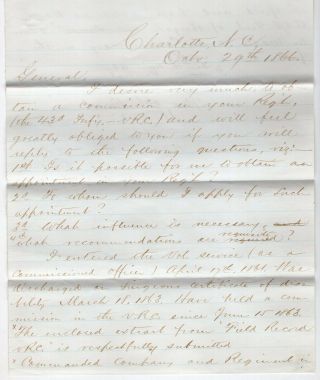 Charlotte, N.C.
Octr 29th 1866.
General,
I desire very much to ob-
tain a commission in your Regt.
(the 43d Infty - V.R.C.) and will feel
greatly obliged to you if you will
reply to the following questions, viz:
1st Is it possible for me to obtain an
appointment in your Regt?
2d To whom should I apply for such
appointment?
3d What influence is necessary, and
4th What recommendations are required requisite?
I entered the Vol service (as a
Commissioned officer) April 19th 1861. Was
discharged on Surgeons Certificate of disa-
bility March 18, 1863. Have held a com-
mission in the V.R.C. since June 15th 1863.
"The enclosed extract from "Field Record
V.R.C." is respectfully submitted
"Commanded Company and Regiment in